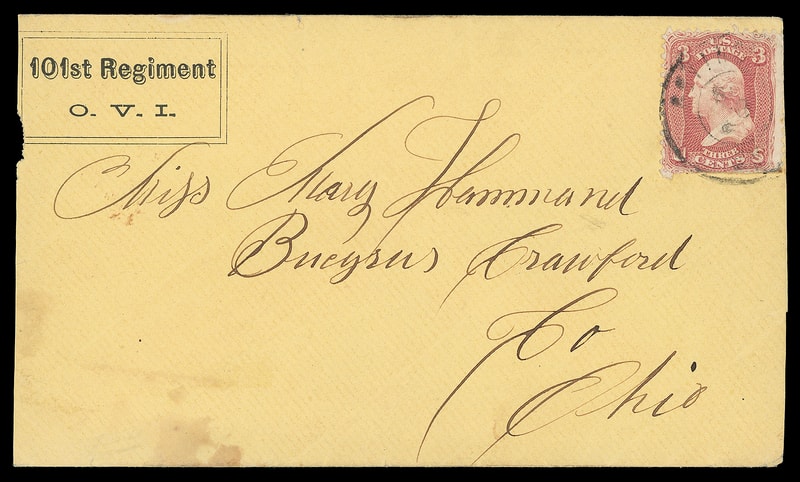 101st Regiment
O. V. I.
3 U.S. 3
POSTAGE
THREE
CENTS
U S
Miss Mary Hammand
Bucyrus Crawford
Co
Ohio